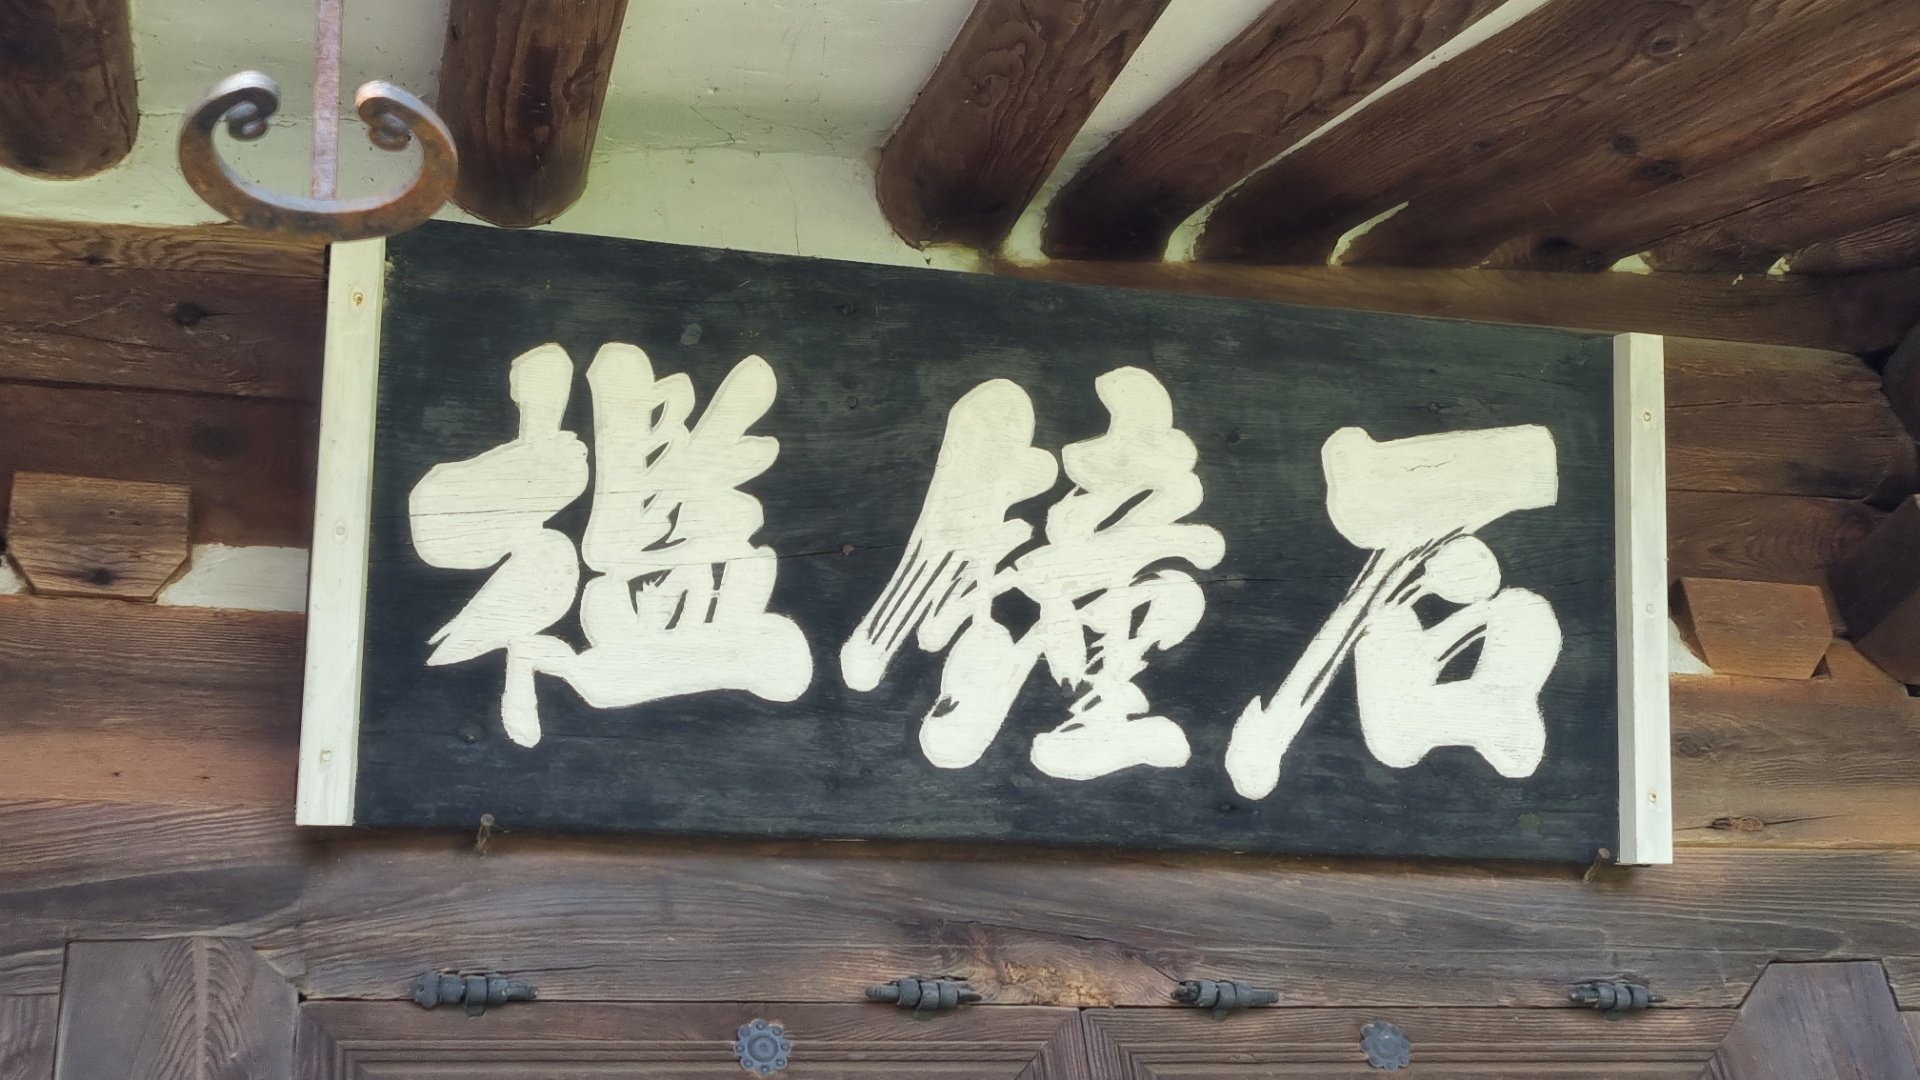 石鐘檻